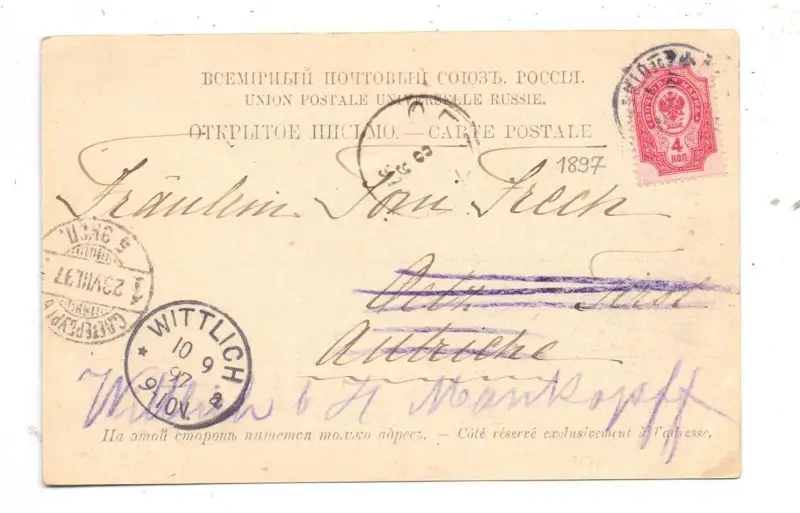 ВСЕМІРНЫЙ ПОЧТОВЫЙ СОЮЗЪ. РОССІЯ.
UNION POSTALE UNIVERSELLE RUSSIE.
ОТКРЫТОЕ ПИСЬМО. — CARTE POSTALE
4
КОП.
1897
Fräulein Toni Frech
Oetz Tirol
Autriche
5 ЭКСП.
29 VIII. 97
С.ПЕТЕРБУРГЪ
WITTLICH
10 9
97
9-10V.
* a
Wittlich b H Mankopff
На этой сторонѣ пишется только адресъ. — Côté réservé exclusivement à l'adresse.